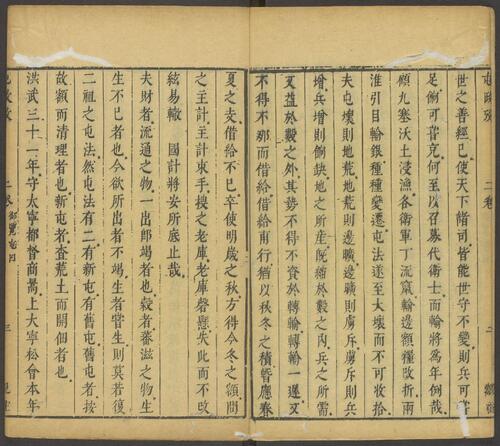 世之善經已使天下諸司皆能世守不變則兵可
足餉可嘗充何至以召募代衛士而輸將爲年例哉
顧九塞沃土浸漁各衛軍丁流竄輸邊額糧改折兩
淮引目輸銀種種變遷屯法遂至大壞而不可收拾
夫屯壞則地荒地荒則邊曠邊曠則虜斥虜斥則兵
增兵增則餉缺地之所產既縮於穀之內兵之所需
又益於穀之外其勢不得不資於轉輸轉輸一遲又
不得不那而借給借給甫行猶以秋冬之積暫應春
夏之支借給不已卒使明歲之秋方得今冬之額間
之主計主計束手搜之老庫老庫罄懸失此而不改
絃易轍 國計將安所底止哉
夫財者流通之物一出卽竭者也穀者蕃滋之物生
生不已者也今欲所出者不竭生者嘗生則莫若復
二祖之屯法然屯法有二有新屯有舊屯舊屯者按
故額而清理者也新屯者查荒土而開個者也
洪武三十一年守大寧都督商暠上大寧松會本年